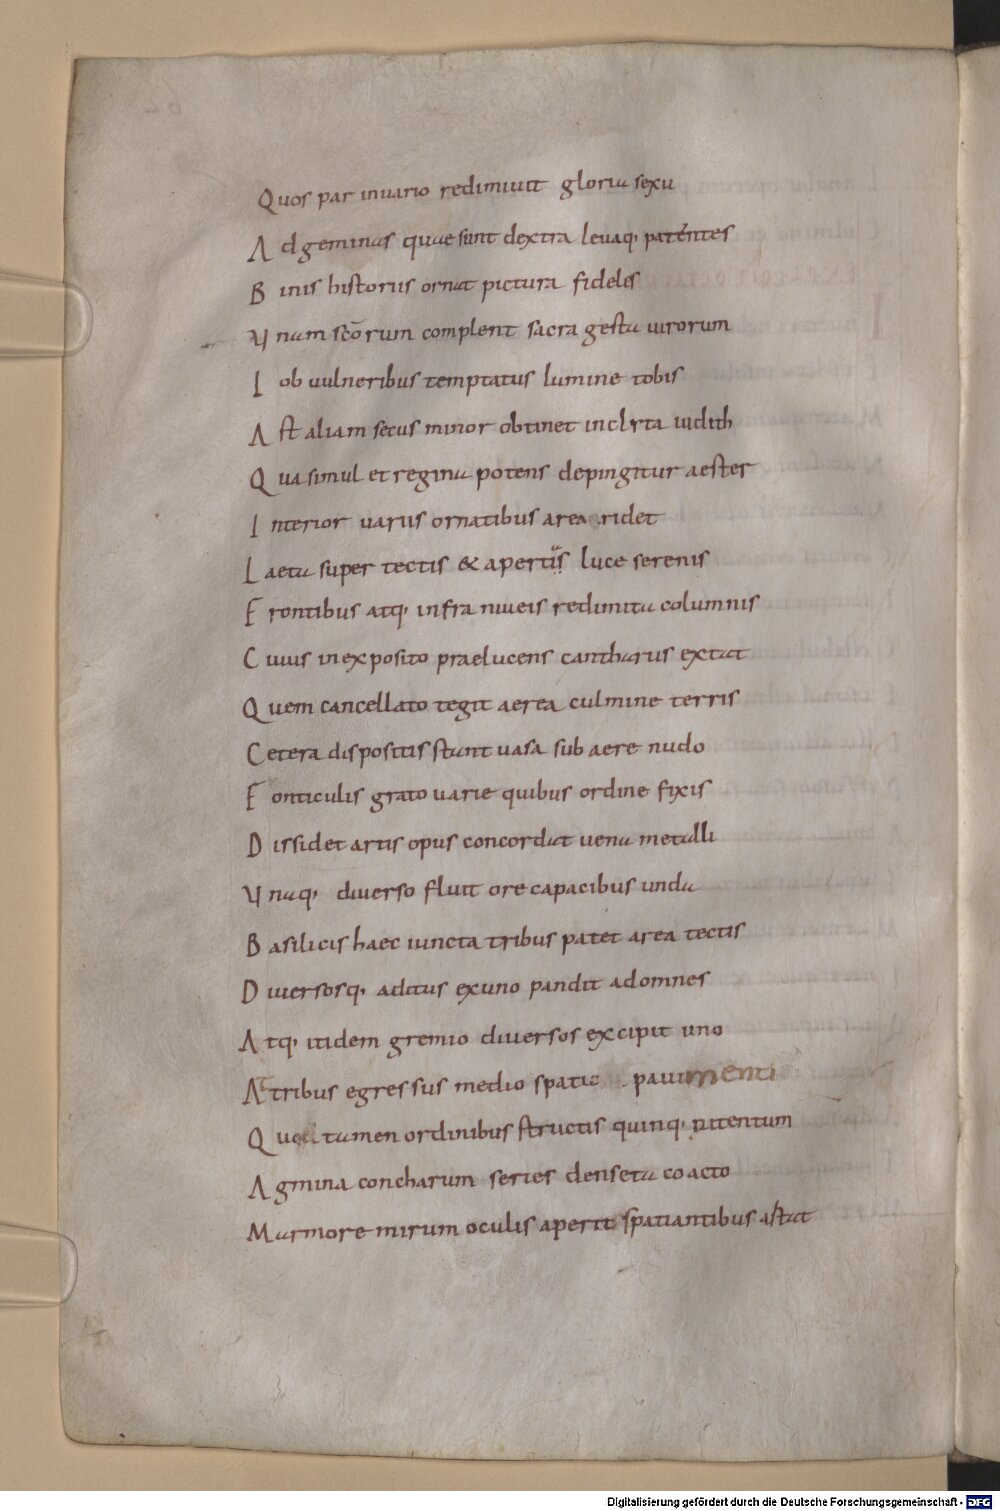 Quos par inuario redimiuit gloria sexu
Ad geminas quae sunt dextra leuaq; patentes
Binis historiis ornat pictura fidelis
Vnam scōrum complent sacra gesta uirorum
Iob uulneribus temptatus lumine tobis
Ast aliam secus minor obtinet inclyta iudith
Qua simul et regina potens depingitur aester
Interior uariis ornatibus area ridet
Laeta super tectis & apertis luce serenis
Frontibus atq; infra niueis redimita columnis
Cuius inexposito praelucens cantharus extat
Quem cancellato tegit aerea culmine terris
Cetera dispositis stant uasa sub aere nudo
Fonticulis grato uarie quibus ordine fixis
Dissidet artis opus concordat uena metalli
Vnaq; diuerso fluit ore capacibus unda
Basilicis haec iuncta tribus patet area tectis
Diuersosq; aditus exuno pandit adomnes
Atq; itidem gremio diuersos excipit uno
Atribus egressus medio spatio pauimenti
Quod tamen ordinibus structis quinq; nitentum
Agmina concharum series denseta coacto
Marmore mirum oculis aperit spatiantibus astat
Digitalisierung gefördert durch die Deutsche Forschungsgemeinschaft - DFG